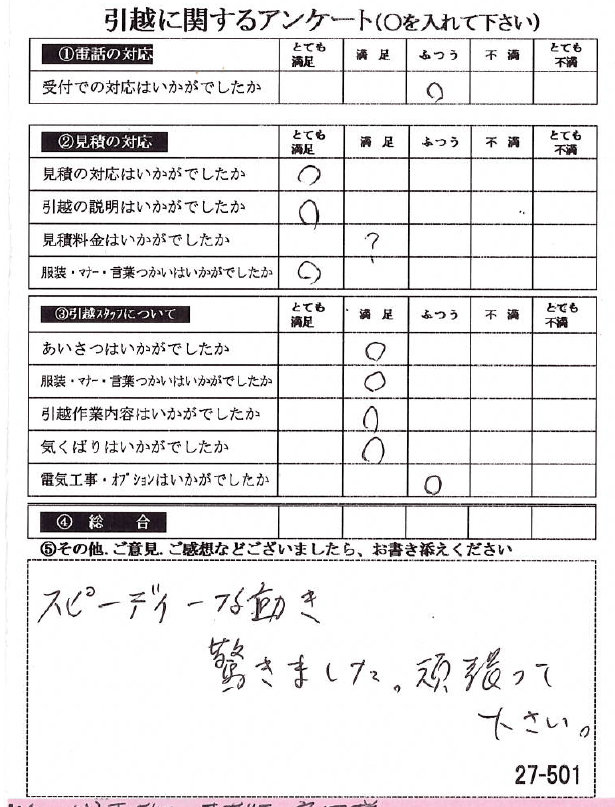 引越に関するアンケート(〇を入れて下さい)
①電話の対応 とても満足 満足 ふつう 不満 とても不満
受付での対応はいかがでしたか ○
②見積の対応 とても満足 満足 ふつう 不満 とても不満
見積の対応はいかがでしたか ○
引越の説明はいかがでしたか ○
見積料金はいかがでしたか ?
服装・マナー・言葉つかいはいかがでしたか ○
③引越スタッフについて とても満足 満足 ふつう 不満 とても不満
あいさつはいかがでしたか ○
服装・マナー・言葉つかいはいかがでしたか ○
引越作業内容はいかがでしたか ○
気くばりはいかがでしたか ○
電気工事・オプションはいかがでしたか ○
④ 総 合
⑤その他.ご意見.ご感想などございましたら、お書き添えください
スピーディーな動き
驚きました。頑張って
下さい。
27-501